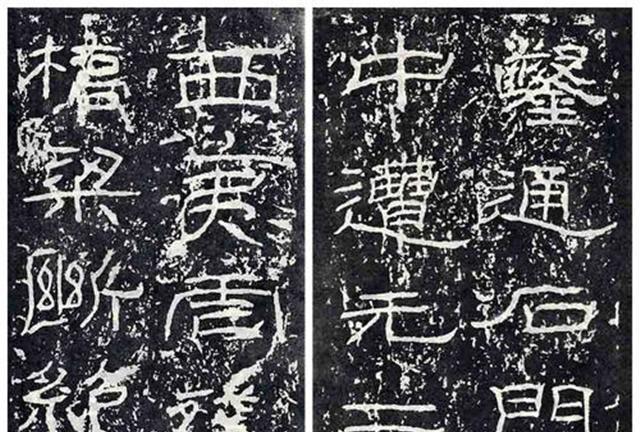 鑿通石門
中遭元二
西夷虐殘
橋梁斷絶